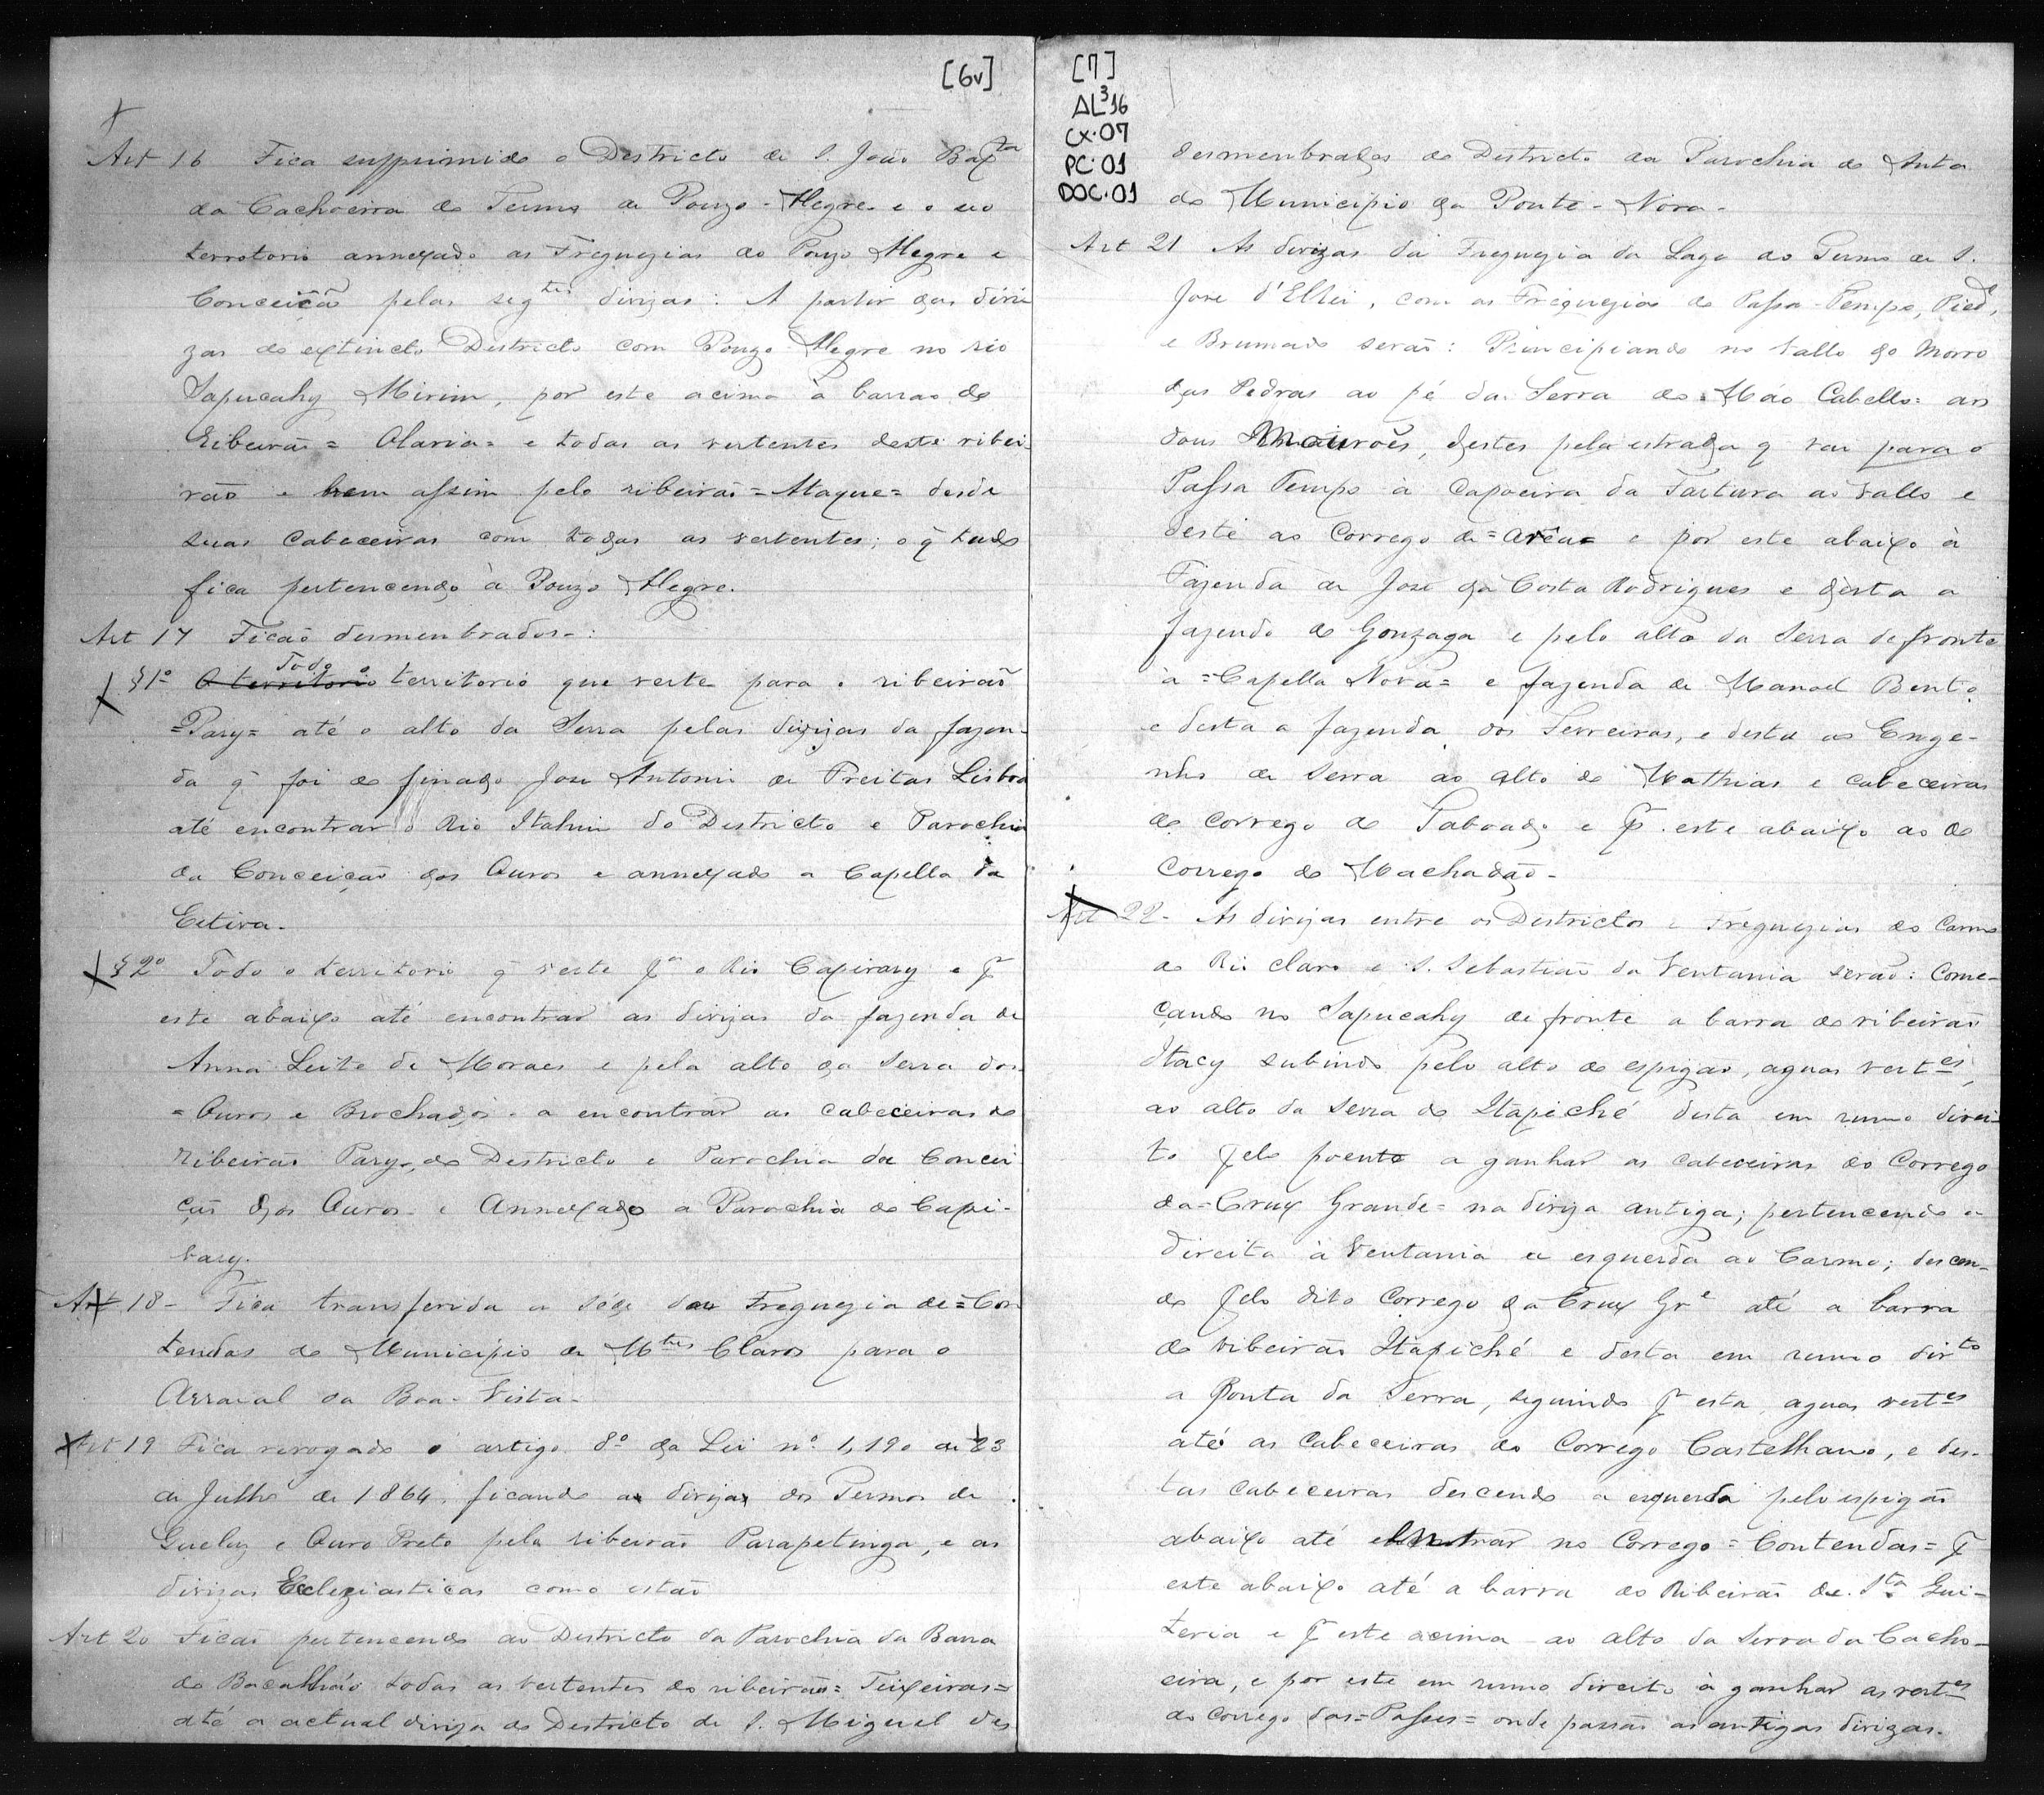 [6v]
Art 16 Fica supprimido o Districto de S. João Bapta
da Cachoeira do Termo de Pouzo-Alegre e o seo
terrotorio annexado as Freguezias do Pouzo Alegre e
Conceição pelas segtes divizas: A partir das divi
zas do extincto Districto com Pouzo Alegre no rio
Sapucahy Mirim, por este acima à barra do
Ribeirão = Olaria = e todas as vertentes deste ribei-
rão e bem assim pelo ribeirão = Ataque = desde
suas cabeceiras com todas as vertentes; o q̃ tudo
fica pertencendo à Pouzo Alegre.
Art 17 Ficaõ desmenbrados-:
§1º O territorio Todo o territorio que verte para o ribeirão
=Pary= até o alto da Serra pelas divizas da fazen-
da q̃ foi do finado Jose Antonio de Freitas Lisboa
até encontrar o Rio Itahim do Districto e Parochia
da Conceição dos Ouros e annexado a Capella da
Estiva.
§2º Todo o territorio q̃ verte pª o Rio Capivary e pr
este abaixo até encontrar as divizas da fazenda de
Anna Leite de Moraes e pela alto da Serra dos
=Ouros e Brochados- a encontrar as cabeceiras do
Ribeirão Pary, do Districto e Parochia da Concei
ção dos Ouros- e Annexado a Parochia do Capi-
vary.
Art 18- Fica transferida a séde da Freguezia de = Con
tendas do Municipio de Mtes Claros para o
Arraial da Boa-Vista-
Art 19 Fica revogado o artigo 8º da Lei nº 1,190 de 23
de Julho de 1864, ficando as divizas dos Termos de
Queluz e Ouro Preto pelo ribeirão Parapetinga, e as
divizas Ecleziasticas como estão
Art 20 Ficaõ pertencendo ao Districto da Parochia da Barra
do Bacalháo todas as vertentes do ribeirão = Teixeiras =
até a actual diviza do Districto de S. Miguel des
[7]
AL³16
CX.07
PC.01
DOC.01
desmenbrados do Districto da Parochia do Anta
do Municipio da Ponte-Nova-
Art 21 As divizas da Freguezia da Lage do Termo de S.
Jose d'ElRei, com as Freguezias de Passa-Tempo, Piede,
e Brumado serão: Principiando no vallo do Morro
das Pedras ao pé da Serra do = Máo Cabello = aos
dous Mourões, destes pela estrada q̃ vai para o
Passa Tempo à Capoeira da Fartura ao vallo e
deste ao Corrego da = area = e por este abaixo à
Fazenda de José da Costa Rodrigues e desta a
fazenda do Gonzaga e pelo alto da Serra defronte
à = Capella Nova = e fazenda de Manoel Bento
e desta a fazenda dos Ferreiras, e desta ao Enge-
nho de Serra ao alto do Mathias e cabeceiras
do corrego do Taboado e pr este abaixo ao do
Corrego do Machadão-
Art 22- As divizas entre os Districtos e Freguezias do Carmo
do Rio Claro e S. Sebastião da Ventania serão: Come-
çando no Sapucahy defronte a barra do ribeirão
Itacy subindo pelo alto do espigão, aguas vertes,
ao alto da Serra do Itapiché desta em rumo direi-
to pelo poente a ganhar as cabeceiras do Corrego
da = Cruz Grande = na diviza antiga; pertencendo a
direita à Ventania e a esquerda ao Carmo; descen-
do pelo dito Corrego da Cruz Gre até a barra
do ribeirão Itapiché e desta em rumo dirto
a Ponta da Serra, seguindo pr esta, aguas vertes
até as Cabeceiras do Corrego Castelhano, e des-
tas cabeceiras descendo a esquerda pelo espigão
abaixo até entrar no Corrego = Contendas = pr
este abaixo até a barra do Ribeirão de Sta Qui-
teria e pr este acima ao alto da Serra da Cacho-
eira, e por este em rumo direito à ganhar as vertes
do Corrego das = Posses = onde passão as antigas divizas.